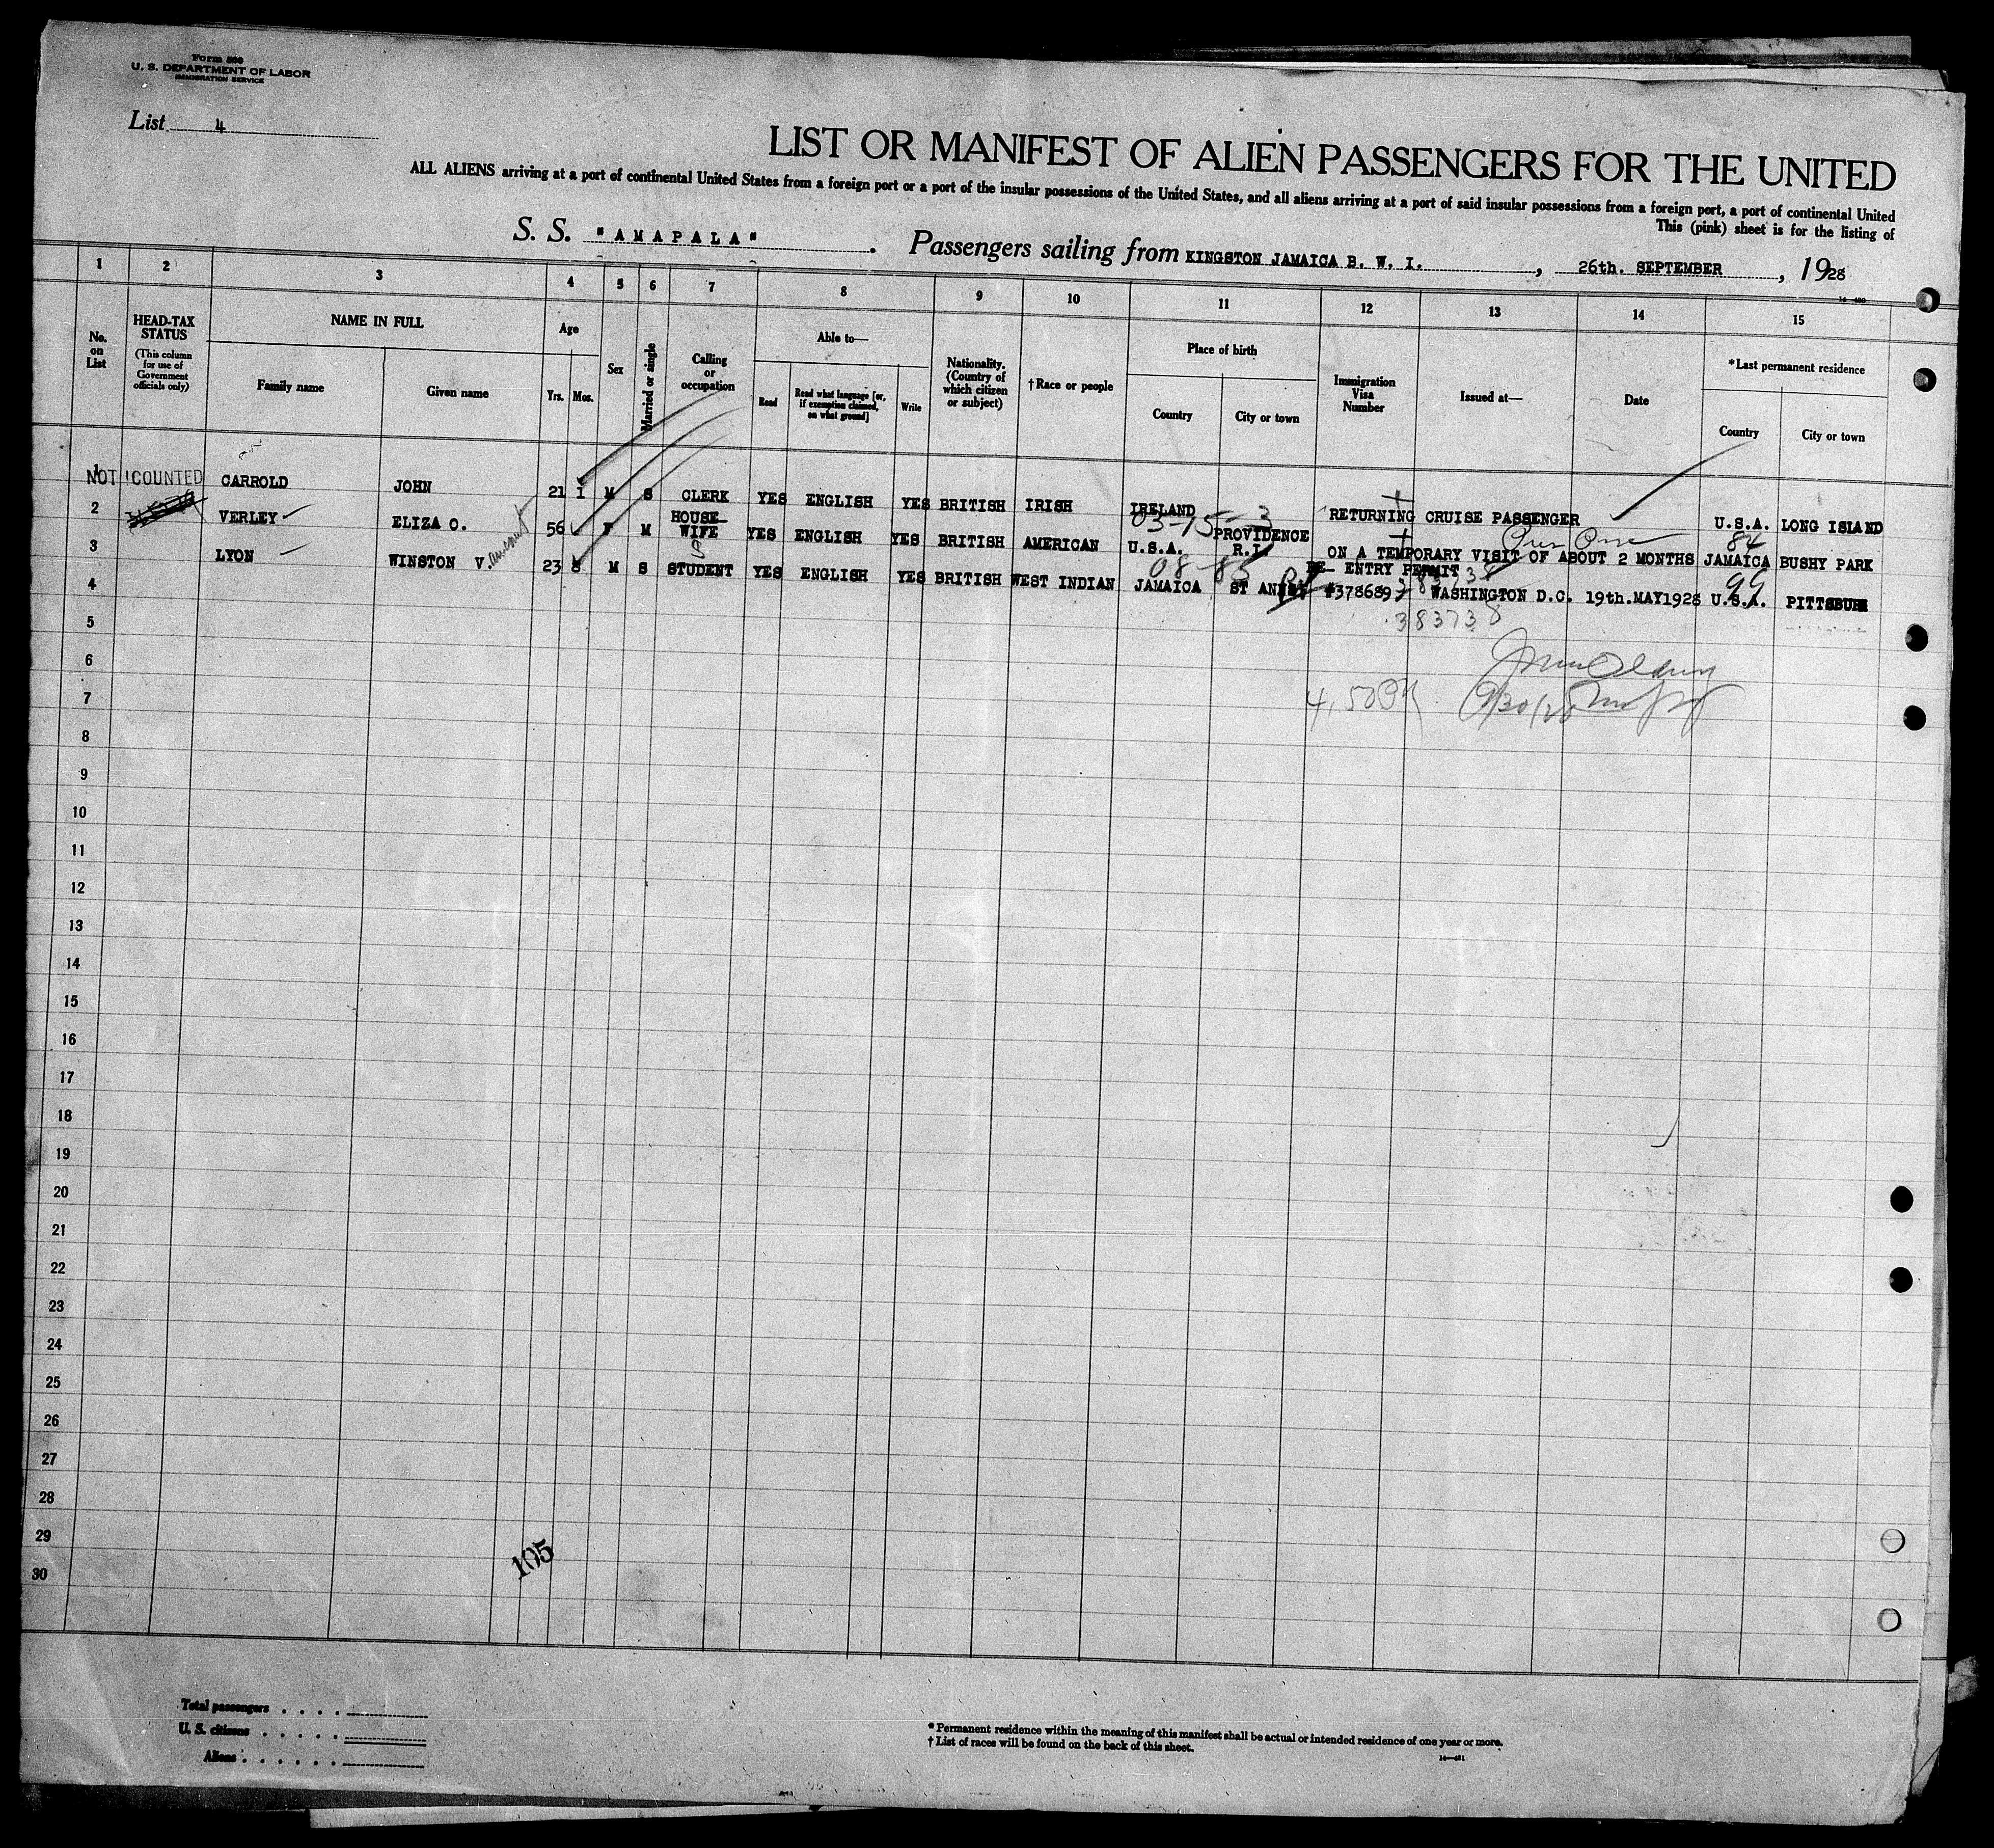 Form 500
U. S. DEPARTMENT OF LABOR
IMMIGRATION SERVICE
List 4
LIST OR MANIFEST OF ALIEN PASSENGERS FOR THE UNITED
ALL ALIENS arriving at a port of continental United States from a foreign port or a port of the insular possessions of the United States, and all aliens arriving at a port of said insular possessions from a foreign port, a port of continental United
This (pink) sheet is for the listing of
S. S. "AMAPALA". Passengers sailing from KINGSTON JAMAICA B. W. I., 26th. SEPTEMBER, 1928
1 2 3 4 5 6 7 8 9 10 11 12 13 14 15
No. on List
HEAD-TAX STATUS
(This column for use of Government officials only)
NAME IN FULL
Family name
Given name
Age
Yrs.
Mos.
Sex
Married or single
Calling or occupation
Able to—
Read
Read what language [or, if exemption claimed, on what ground]
Write
Nationality. (Country of which citizen or subject)
†Race or people
Place of birth
Country
City or town
Immigration Visa Number
Issued at—
Date
*Last permanent residence
Country
City or town
1 NOT COUNTED CARROLD JOHN 21 1 M S CLERK YES ENGLISH YES BRITISH IRISH IRELAND RETURNING CRUISE PASSENGER U.S.A. LONG ISLAND
03-15-3
84
2 VERLEY ELIZA C. 56 F M HOUSE-WIFE YES ENGLISH YES BRITISH AMERICAN U.S.A. PROVIDENCE R.I. ON A TEMPORARY VISIT OF ABOUT 2 MONTHS JAMAICA BUSHY PARK
08-85
99
3 LYON WINSTON V. 23 8 M S STUDENT YES ENGLISH YES BRITISH WEST INDIAN JAMAICA ST ANNS RE- ENTRY PERMIT #378689 WASHINGTON D.C. 19th.MAY1928 U.S.A. PITTSBURH
383738
4
5
6
7
9/30/28
8
9
10
11
12
13
14
15
16
17
18
19
20
21
22
23
24
25
26
27
28
29
30
105
Total passengers
U. S. citizens
Aliens
*Permanent residence within the meaning of this manifest shall be actual or intended residence of one year or more.
†List of races will be found on the back of this sheet.